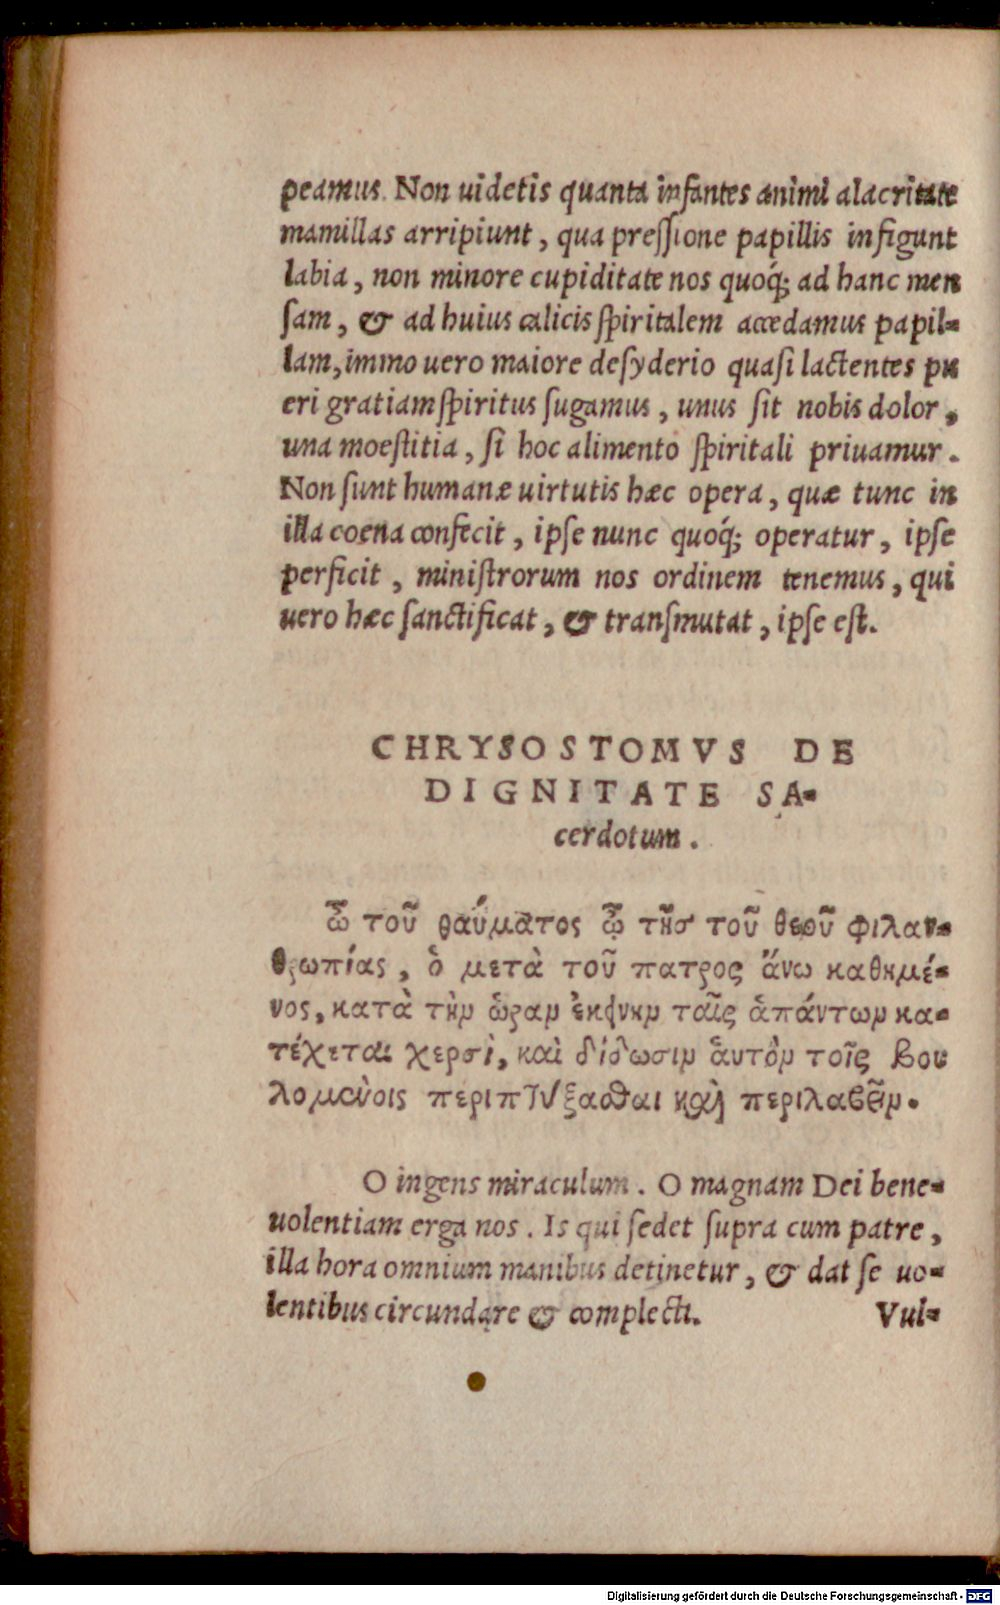 peamus. Non uidetis quanta infantes animi alacritate
mamillas arripiunt, qua pressione papillis infigunt
labia, non minore cupiditate nos quoq́; ad hanc men
sam, & ad huius calicis spiritalem accedamus papil-
lam, immo uero maiore desyderio quasi lactentes pu
eri gratiam spiritus sugamus, unus sit nobis dolor,
una moestitia, si hoc alimento spiritali priuamur.
Non sunt humanæ uirtutis hæc opera, quæ tunc in
illa coena confecit, ipse nunc quoq́; operatur, ipse
perficit, ministrorum nos ordinem tenemus, qui
uero hæc sanctificat, & transmutat, ipse est.
CHRYSOSTOMVS DE
DIGNITATE SA-
cerdotum.
ὦ τοῦ θαύματος ὦ τῆσ τοῦ θεοῦ φιλαν-
θρωπίας, ὁ μετὰ τοῦ πατρος ἄνω καθημέ-
νος, κατὰ τὴν ὥραν ἐκείνην ταῖς ἁπάντων κα-
τέχεται χερσὶ, καὶ δίδωσιν ἁυτὸν τοῖς βου
λομένοις περιπτύξασθαι καὶ περιλαβεῖν.
O ingens miraculum. O magnam Dei bene-
uolentiam erga nos. Is qui sedet supra cum patre,
illa hora omnium manibus detinetur, & dat se uo-
lentibus circundare & complecti. Vul-
Digitalisierung gefördert durch die Deutsche Forschungsgemeinschaft - DFG